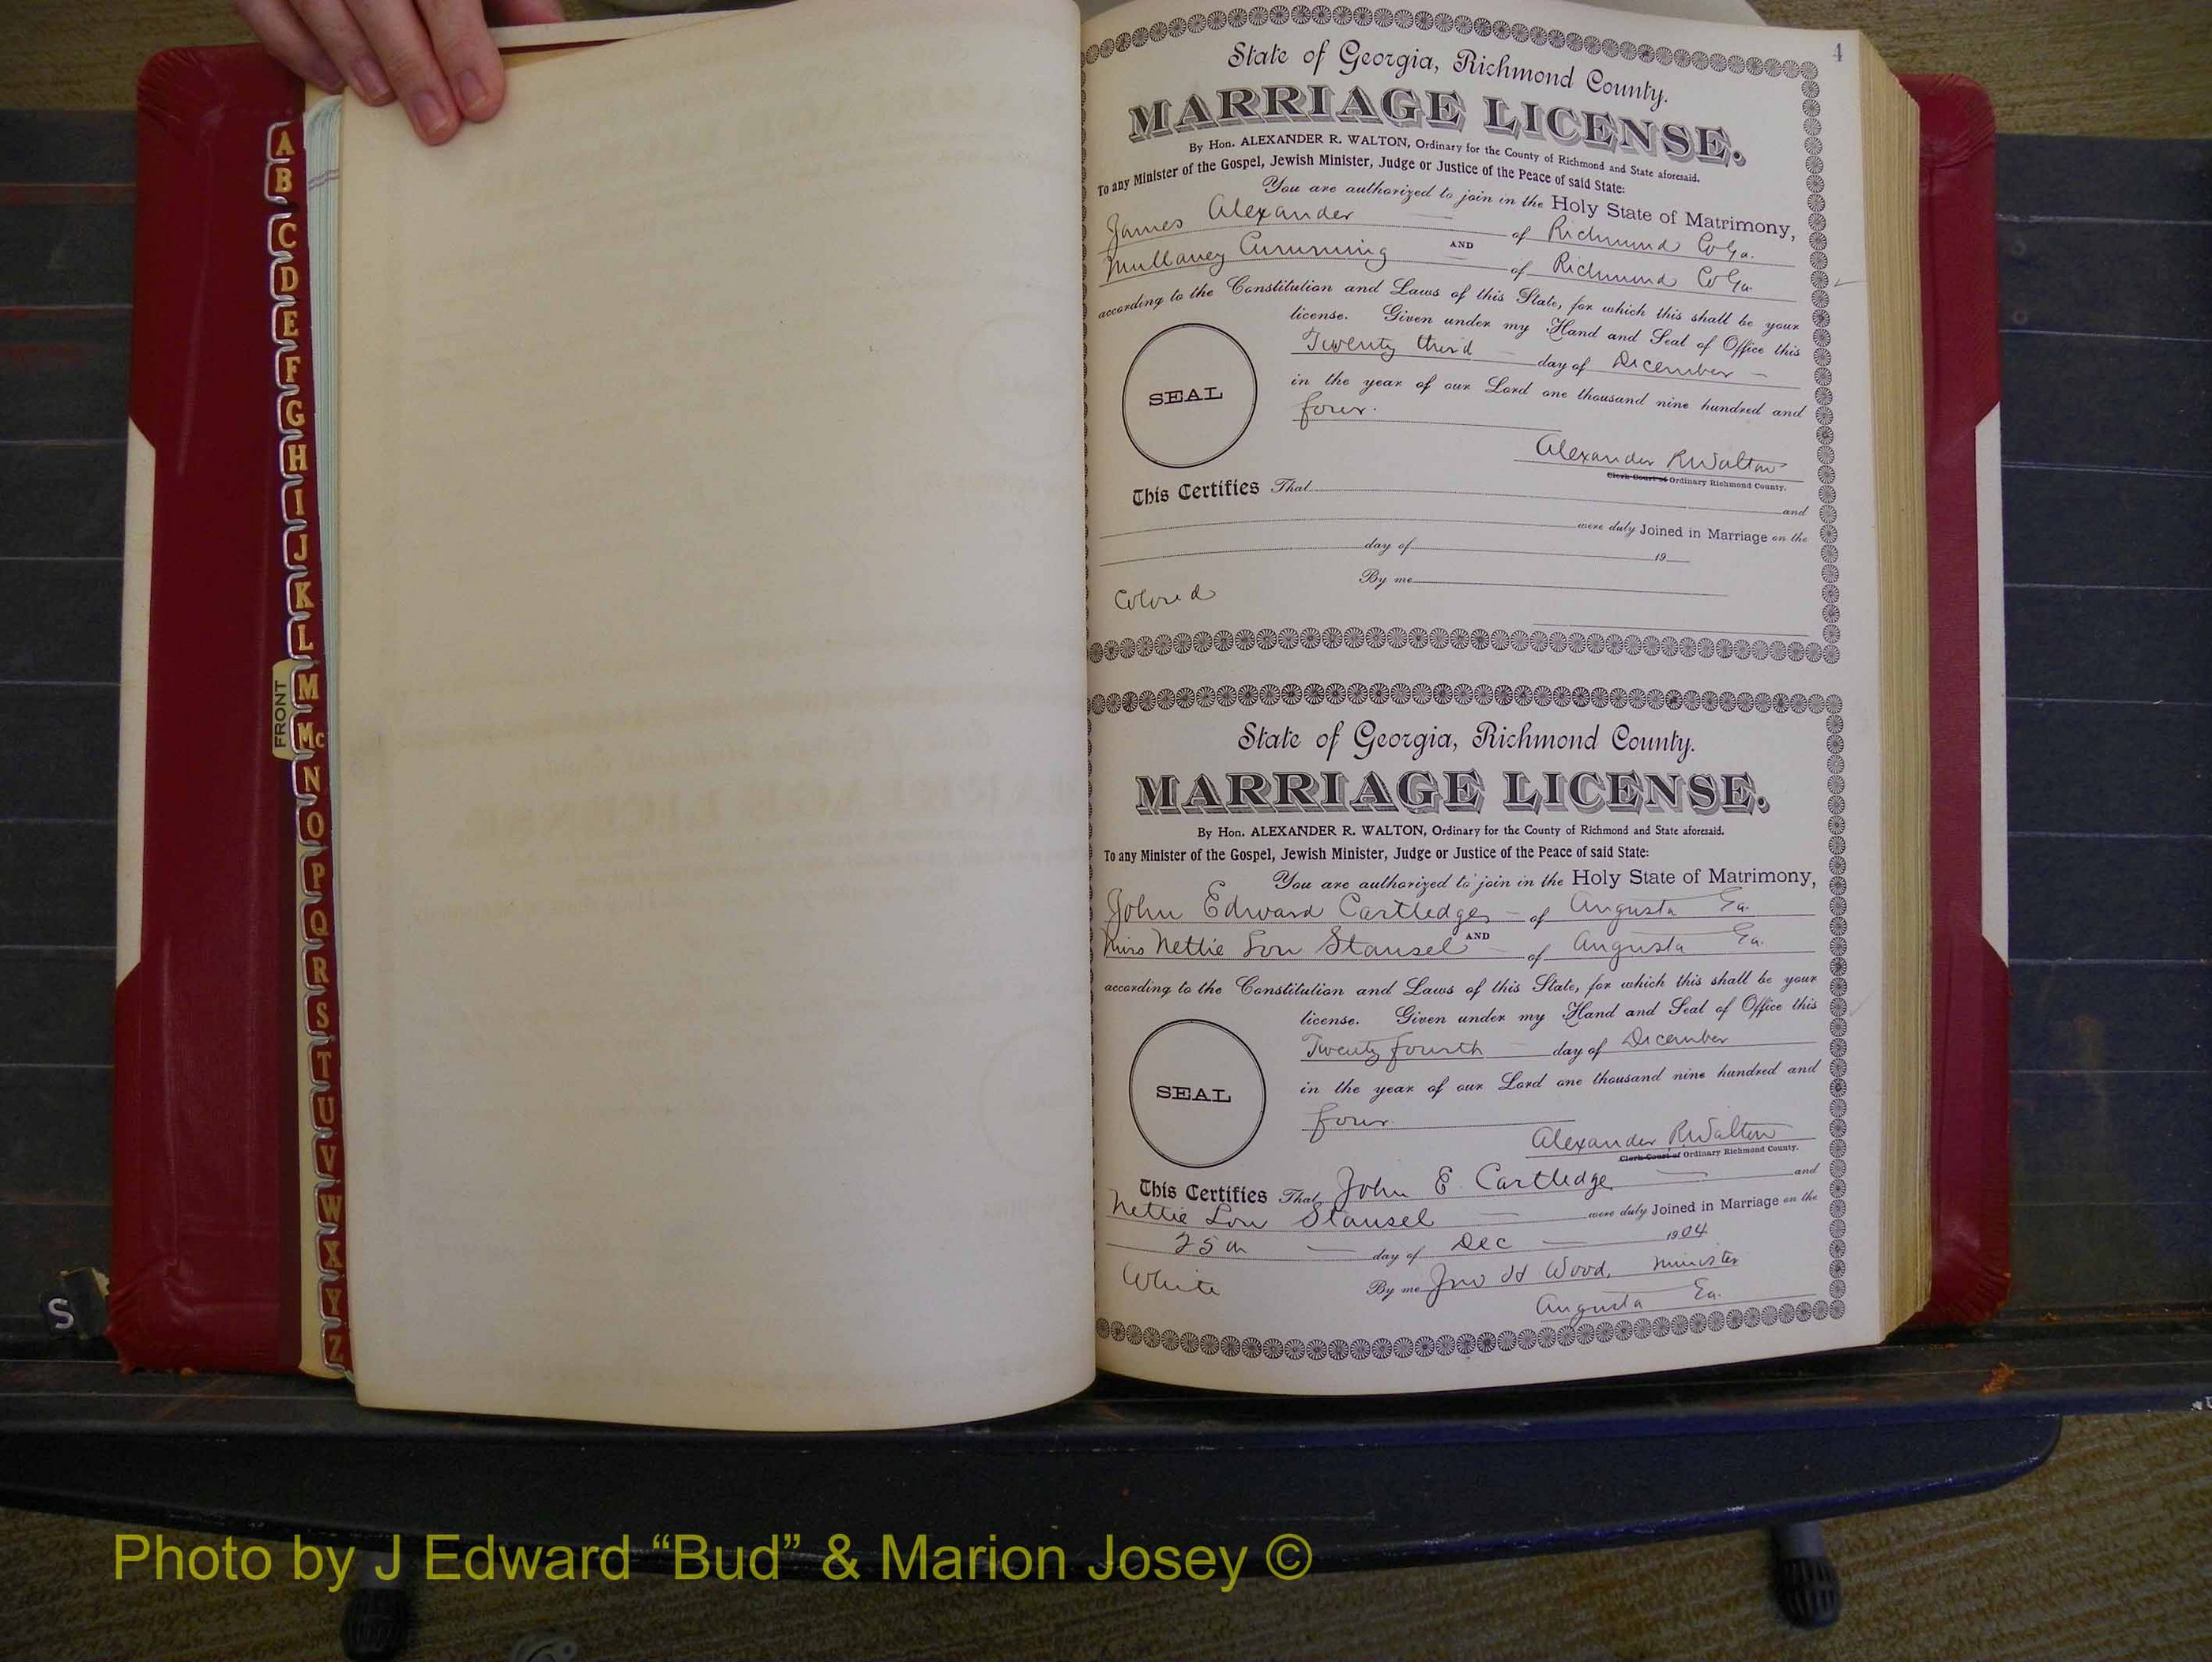 A
B
C
D
E
F
G
H
I
J
K
L
M
Mc
N
O
P
Q
R
S
T
U
V
W
X
Y
Z
FRONT
S
4
State of Georgia, Richmond County.
MARRIAGE LICENSE.
By Hon. ALEXANDER R. WALTON, Ordinary for the County of Richmond and State aforesaid.
To any Minister of the Gospel, Jewish Minister, Judge or Justice of the Peace of said State:
You are authorized to join in the Holy State of Matrimony,
James Alexander of Richmond Co Ga.
AND
Mullaney Cumming of Richmond Co Ga.
according to the Constitution and Laws of this State, for which this shall be your
license. Given under my Hand and Seal of Office this
Twenty third day of December
in the year of our Lord one thousand nine hundred and
four.
SEAL
Alexander R Walton
Clerk Court of Ordinary Richmond County.
This Certifies That
and
were duly Joined in Marriage on the
day of 19
By me
Colored
State of Georgia, Richmond County.
MARRIAGE LICENSE.
By Hon. ALEXANDER R. WALTON, Ordinary for the County of Richmond and State aforesaid.
To any Minister of the Gospel, Jewish Minister, Judge or Justice of the Peace of said State:
You are authorized to join in the Holy State of Matrimony,
John Edward Cartledge of Augusta Ga.
AND
Miss Nettie Lou Stansel of Augusta Ga.
according to the Constitution and Laws of this State, for which this shall be your
license. Given under my Hand and Seal of Office this
Twenty fourth day of December
in the year of our Lord one thousand nine hundred and
four.
SEAL
Alexander R Walton
Clerk Court of Ordinary Richmond County.
This Certifies That John E. Cartledge and
Nettie Lou Stansel were duly Joined in Marriage on the
25th day of Dec 1904
White By me Jno H Wood, Minister
Augusta Ga.
Photo by J Edward “Bud” & Marion Josey ©